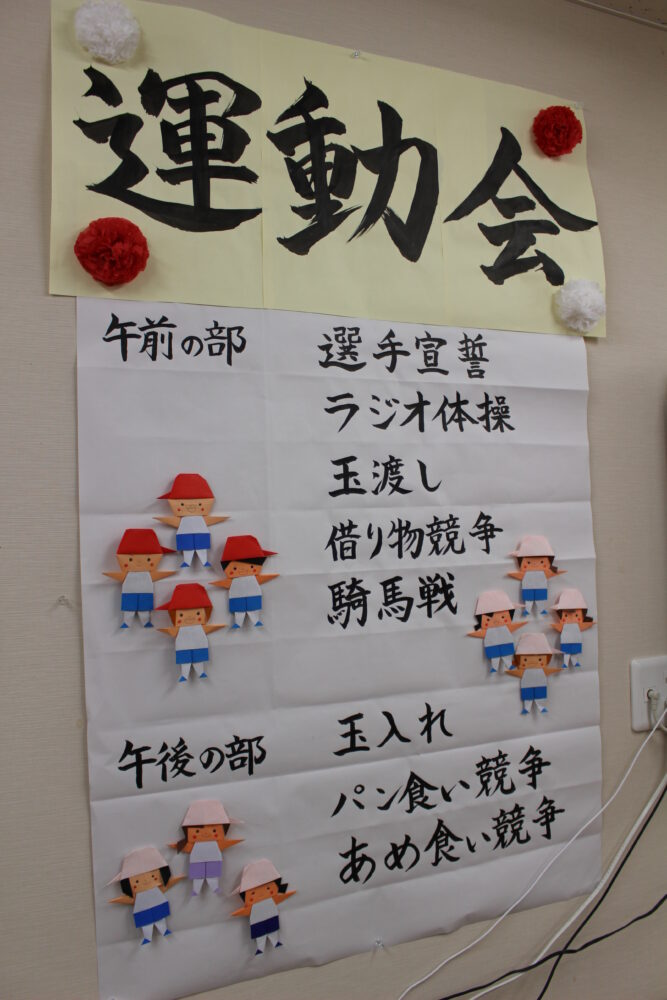 運動会
午前の部
選手宣誓
ラジオ体操
玉渡し
借り物競争
騎馬戦
午後の部
玉入れ
パン食い競争
あめ食い競争